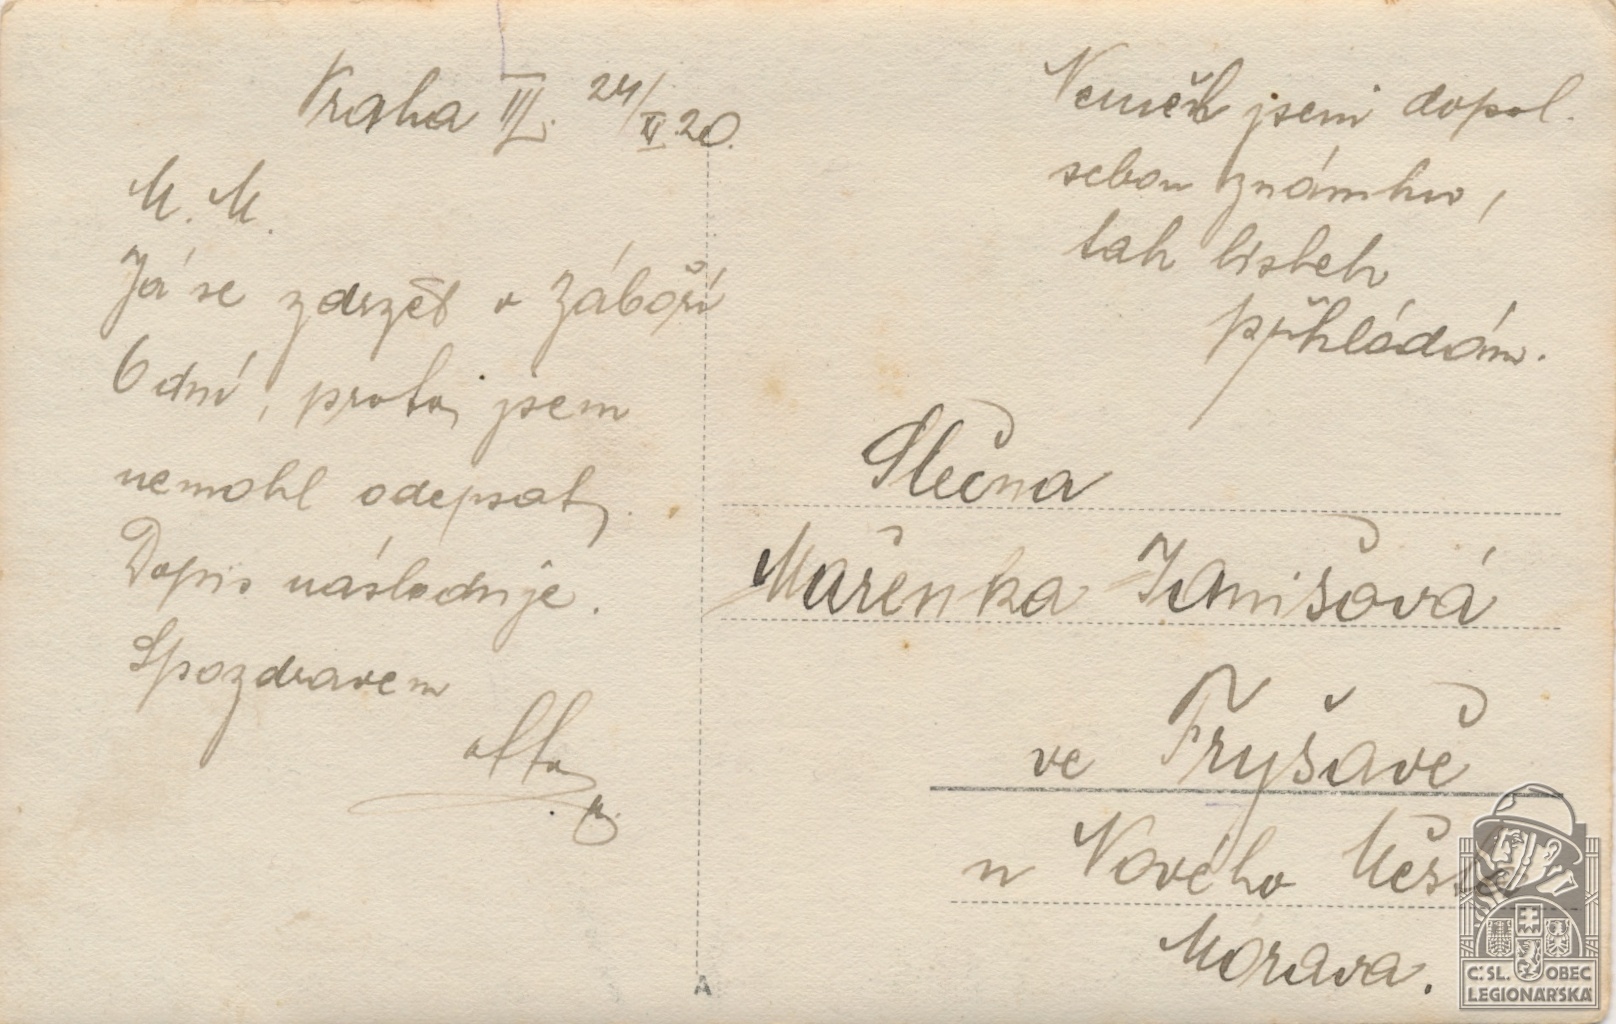 Praha III. 24/XI 20.
M. M.
Já se zdržel v Záboří
6 dní, proto jsem
nemohl odepsat.
Dopis následuje.
S pozdravem
Neměl jsem dopol.
sebou známku,
tak lístek
přikládám.
Slečna
Mařenka Janišová
ve Fryšavě
u Nového Města
Morava.
A
Č. SL. OBEC
LEGIONÁŘSKÁ